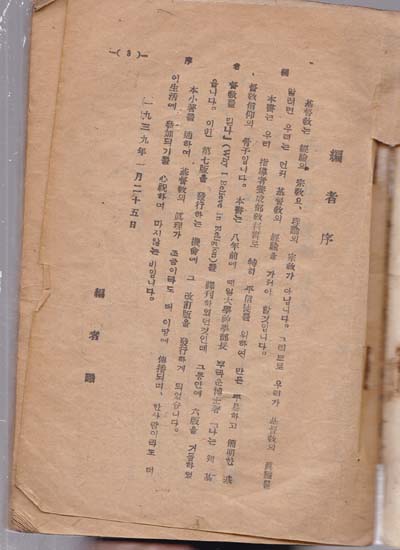 —( 3 )—
編 者 序
編者序
基督敎는 經驗의 宗敎요, 理論의 宗敎가 아닙니다. 그럼으로 우리가 基督敎의 眞髓를
알려면 우리는 먼저 基督敎의 經驗을 가져야 할것입니다.
本書는 우리 指導者養成部敎科書로 特히 平信徒를 위하여 만든 平易하고 簡明한 基
督敎信仰의 骨子입니다. 本書는 八年前에 예일大學神學部長 博士著 「나는 웨 基
督敎를 믿나」(Why I Believe in Religion)를 譯刊하였던것인데 그동안에 六版을 거듭하였
읍니다. 이번 第七版을 發行하는 機會에 그 改訂版을 發行하게 되었습니다.
本小著를 通하여 基督敎의 眞理가 조금이라도 더 이땅에 傳播되며, 한사람이라도 더
이生活에 參加되기를 心祝하여 마지않는 바입니다.
一九三九年 一月二十五日
編者識